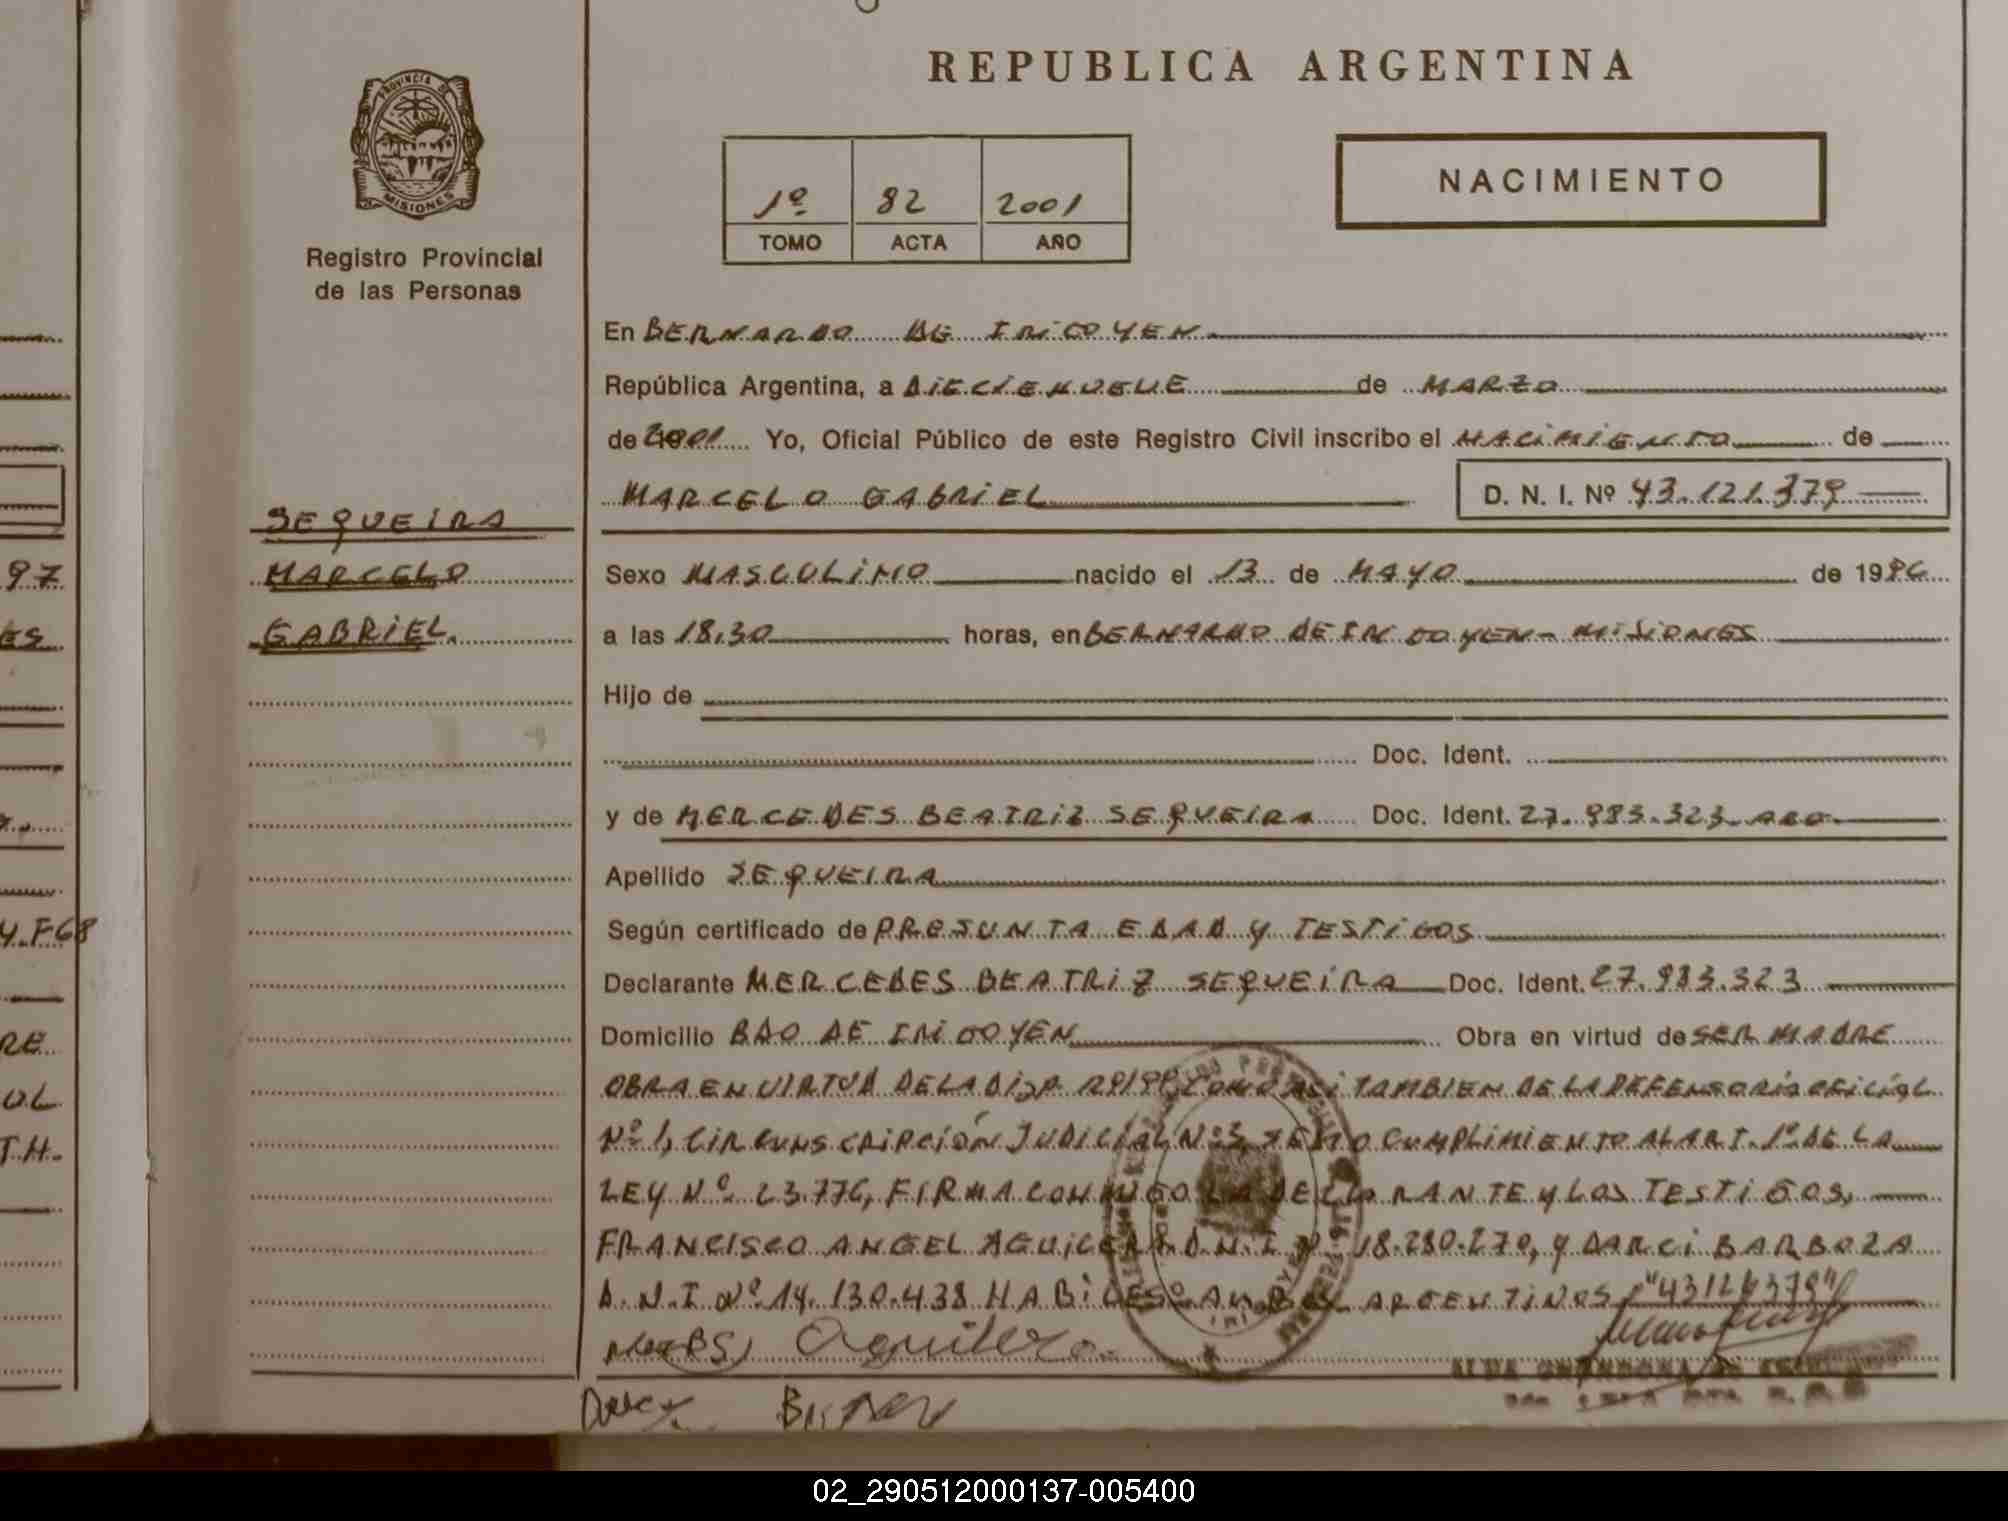 REPUBLICA ARGENTINA
PROVINCIA DE MISIONES
Registro Provincial
de las Personas
1º 82 2001
TOMO ACTA AÑO
NACIMIENTO
En BERNARDO DE IRIGOYEN
República Argentina, a DIECIENUEUE de MARZO
de 2001 Yo, Oficial Público de este Registro Civil inscribo el NACIMIENTO de
MARCELO GABRIEL D. N. I. Nº 43.121.379
SEQUEIRA
MARCELO
GABRIEL.
Sexo MASCULINO nacido el 13 de MAYO de 1996
a las 18,30 horas, en BERNARDO DE IRIGOYEN - MISIONES
Hijo de
Doc. Ident.
y de MERCEDES BEATRIZ SEQUEIRA Doc. Ident. 27.983.323
Apellido SEQUEIRA
Según certificado de PRESUNTA EDAD Y TESTIGOS
Declarante MERCEDES BEATRIZ SEQUEIRA Doc. Ident. 27.983.323
Domicilio BDO DE IRIGOYEN Obra en virtud de SER MADRE
OBRA EN VIRTUD DE LA COMO ASI TAMBIEN DE LA DEFENSORIA OFICIAL
Nº 1, CIRCUNSCRIPCIÓN JUDICIAL Nº 3, CUMPLIMIENTO AL ART. 1º DE LA
LEY Nº 23.776, FIRMA CONMIGO LA DECLARANTE Y LOS TESTIGOS,
FRANCISCO ANGEL AGUILERA D.N.I. Nº 18.280.270, Y DARCI BARBOZA
D.N.I Nº 14.130.438 HABILES AMBOS ARGENTINOS "43121379"
Aguilera
97
ES
Y.F68
RE
OL
T.H.
02_290512000137-005400